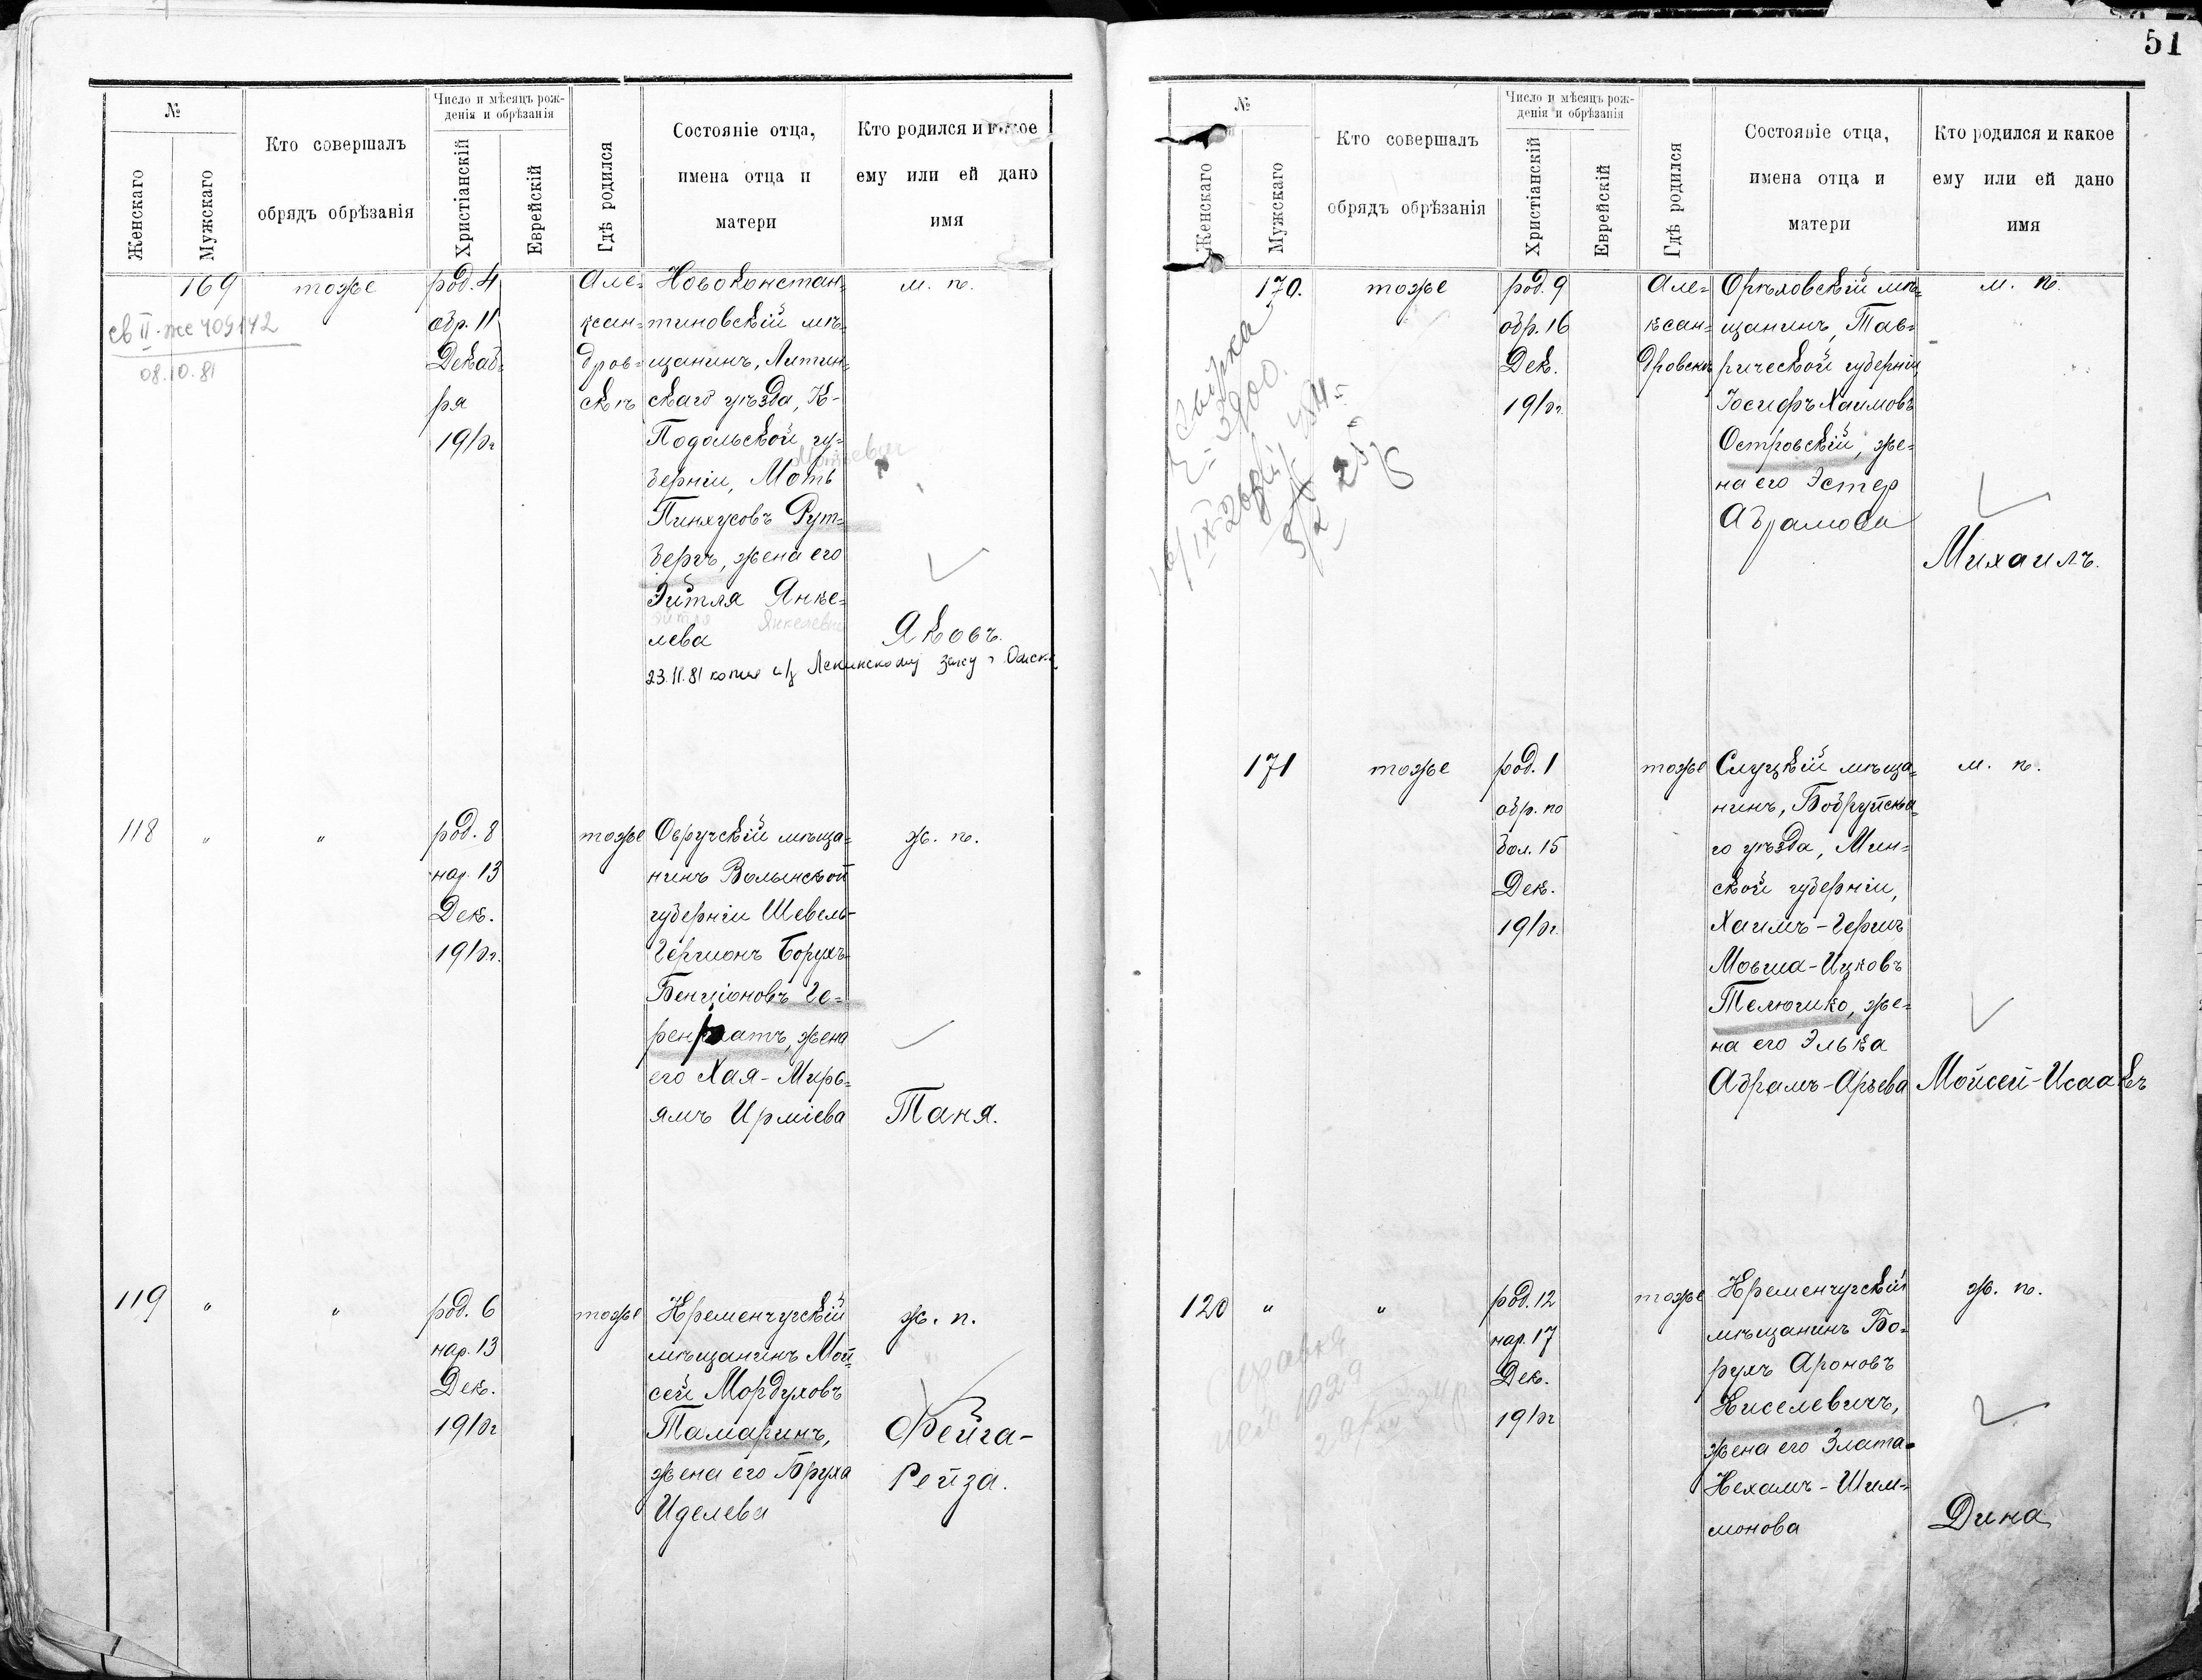 51
№
Женскаго
Мужскаго
Кто совершалъ
обрядъ обрѣзанія
Число и мѣсяцъ рож-
денія и обрѣзанія
Христіанскій
Еврейскій
Гдѣ родился
Состояніе отца,
имена отца и
матери
Кто родился и какое
ему или ей дано
имя
169
тоже
род. 4
обр. 11
Декаб-
ря
Але-
ксан-
дров-
скъ
Новоконстан-
тиновскій мѣ-
щанинъ, Литин-
скаго уѣзда, К-
Подольской гу-
берніи, Моть
Пинхусовъ Рут-
бергъ, жена его
Эйтля Янке-
лева
м. п.
Яковъ.
св II-же 409142
08.10.81
118
"
"
род. 8
нар. 13
Дек.
тоже
Овручскій мѣща-
нинъ Волынской
губерніи Шевель-
Гершонъ Борухъ-
Бенціоновъ Ге-
жена
его Хая-Мирь-
ямъ Ирміева
ж. п.
Таня.
119
"
"
род. 6
нар. 13
Дек.
тоже
Кременчугскій
мѣщанинъ Мой-
сей Мордуховъ
Тамаринъ,
жена его Бруха
Иделева
ж. п.
Фейга-
Рейза.
№
Женскаго
Мужскаго
Кто совершалъ
обрядъ обрѣзанія
Число и мѣсяцъ рож-
денія и обрѣзанія
Христіанскій
Еврейскій
Гдѣ родился
Состояніе отца,
имена отца и
матери
Кто родился и какое
ему или ей дано
имя
170.
тоже
род. 9
обр. 16
Дек.
Але-
ксан-
дровскъ
Орѣховскій мѣ-
щанинъ, Тав-
рической губерніи
Іосифъ Хаимовъ
Островскій, же-
на его Эстер
Абрамова
м. п.
Михаилъ.
171
тоже
род. 1
обр. по
бол. 15
Дек.
тоже
Слуцкій мѣща-
нинъ, Бобруйска-
го уѣзда, Мин-
ской губерніи,
Хаимъ-Гершъ
Мовша-Ицковъ
Телюшко, же-
на его Элька
Абрамъ-Арьева
м. п.
Мойсей-Исаакъ
120
"
"
род. 12
нар. 17
Дек.
тоже
Кременчугскій
мѣщанинъ Бо-
рухъ Ароновъ
Киселевичъ,
жена его Злата-
Нехамъ-Шим-
монова
ж. п.
Дина